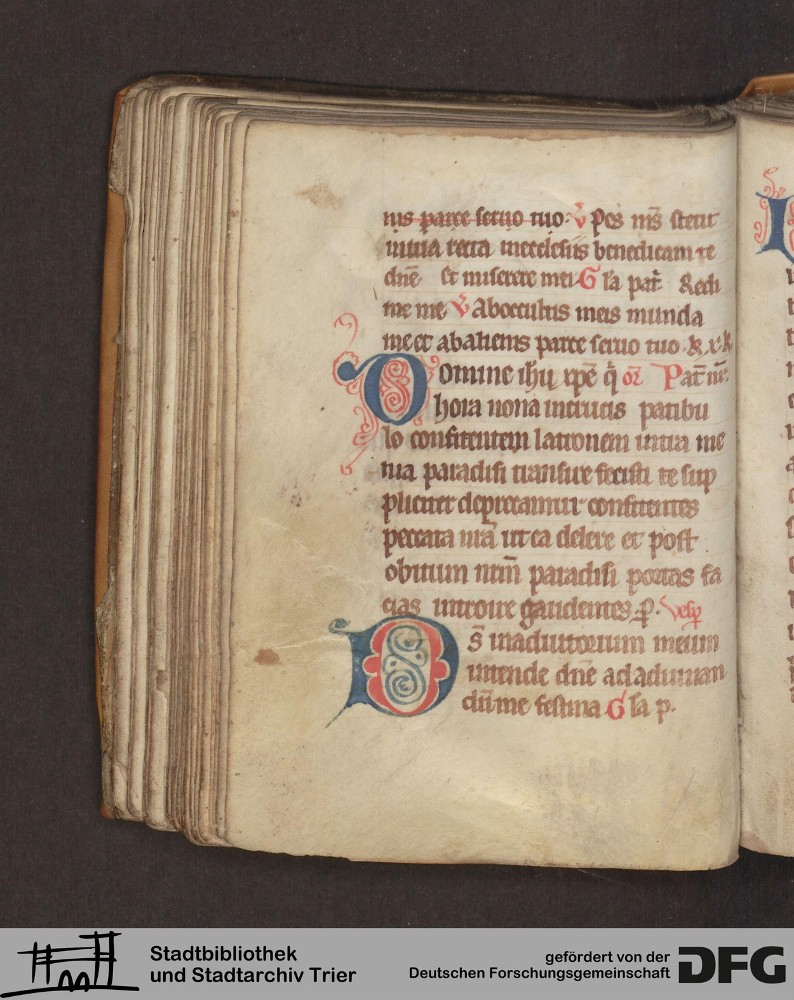 nis parce seruo tuo. V Pes mẽs stetit
in uia recta in ecclesiis benedicam te
dnẽ Et miserere mei G l̃a pat̃ Redi
me me V Ab occultis meis munda
me et ab alienis parce seruo tuo k. x. k
Domine ihũ xpẽ q̃ or̃ Pat̃ nr̃.
hora nona in crucis patibu
lo confitentem latronem intra me
nia paradisi transire fecisti te sup
pliciter deprecamur confitentes
peccata nr̃a ut ea delere et post
obitum nr̃m paradisi portas fa
cias introire gaudentes. p. Vesp
Ds̃ in adiutorium meum
intende dnẽ ad adiuuan
dũ me festina G l̃a p.
Stadtbibliothek
und Stadtarchiv Trier
gefördert von der
Deutschen Forschungsgemeinschaft
DFG